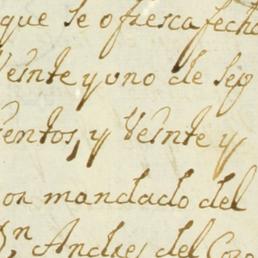 que se ofresca fecho
Veinte y uno de sep
entos, y Veinte y
or mandado del
Dn, Andres del Coro